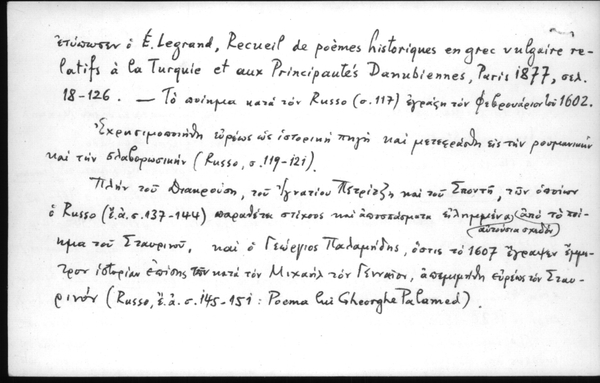 ἐτύπωσεν ὁ É. Legrand, Recueil de poèmes historiques en grec vulgaire re-
latifs à la Turquie et aux Principautés Danubiennes, Paris 1877, σελ.
18-126. — Τὸ ποίημα κατὰ τὸν Russo (σ. 117) ἐγράφη τὸν Φεβρουάριον τοῦ 1602.
Ἐχρησιμοποιήθη εὐρέως ὡς ἱστορικὴ πηγὴ καὶ μετεφράσθη εἰς τὴν ρουμανικὴν
καὶ τὴν σλαβορωσικήν (Russo, σ. 119-121).
Πλὴν τοῦ Διακρούση, τοῦ Ἰγνατίου Πετρίτζη καὶ τοῦ Σποντῆ, τῶν ὁποίων
ὁ Russo (ἔ.ἀ. σ. 137-144) παραθέτει στίχους καὶ ἀποσπάσματα εἰλημμένα ἀπὸ τὸ ποί-
αὐτούσια σχεδὸν
ημα τοῦ Σταυρινοῦ, καὶ ὁ Γεώργιος Παλαμήδης, ὅστις τὸ 1607 ἔγραψεν ἔμμε-
τρον ἱστορίαν ἐπίσης τῶν κατὰ τὸν Μιχαὴλ τὸν Γενναῖον, ἀπεμιμήθη εὐρέως τὸν Σταυ-
ρινόν (Russo, ἔ.ἀ. σ. 145-151: Poema lui Gheorghe Palamed).